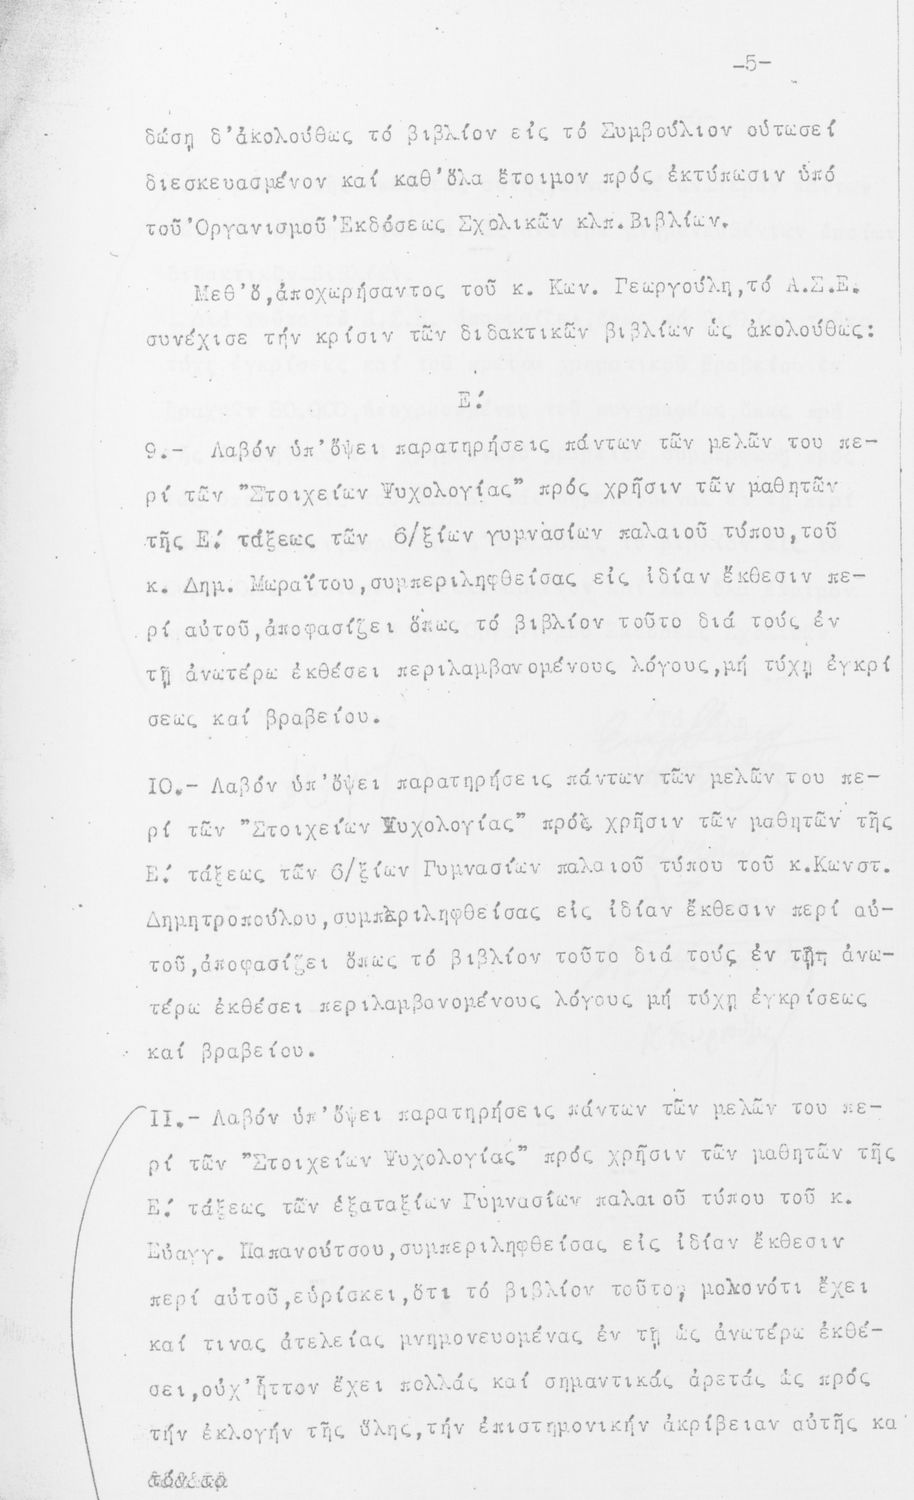 -5-
δώσῃ δ'ἀκολούθως τό βιβλίον εἰς τό Συμβούλιον οὑτωσεί
διεσκευασμένον καί καθ'ὅλα ἕτοιμον πρός ἐκτύπωσιν ὑπό
τοῦ Ὀργανισμοῦ Ἐκδόσεως Σχολικῶν κλπ. Βιβλίων.
Μεθ'ὅ, ἀποχωρήσαντος τοῦ κ. Κων. Γεωργούλη, τό Α.Σ.Ε.
συνέχισε τήν κρίσιν τῶν διδακτικῶν βιβλίων ὡς ἀκολούθως:
Ε!
9.- Λαβόν ὑπ'ὄψει παρατηρήσεις πάντων τῶν μελῶν του πε-
ρί τῶν "Στοιχείων Ψυχολογίας" πρός χρῆσιν τῶν μαθητῶν
τῆς Ε! τάξεως τῶν 6/ξίων γυμνασίων παλαιοῦ τύπου, τοῦ
κ. Δημ. Μωραΐτου, συμπεριληφθείσας εἰς ἰδίαν ἔκθεσιν πε-
ρί αὐτοῦ, ἀποφασίζει ὅπως τό βιβλίον τοῦτο διά τούς ἐν
τῇ ἀνωτέρω ἐκθέσει περιλαμβανομένους λόγους, μή τύχῃ ἐγκρί
σεως καί βραβείου.
IO.- Λαβόν ὑπ'ὄψει παρατηρήσεις πάντων τῶν μελῶν του πε-
ρί τῶν "Στοιχείων Ψυχολογίας" πρός χρῆσιν τῶν μαθητῶν τῆς
Ε! τάξεως τῶν 6/ξίων Γυμνασίων παλαιοῦ τύπου τοῦ κ. Κωνστ.
Δημητροπούλου, συμπεριληφθείσας εἰς ἰδίαν ἔκθεσιν περί αὐ-
τοῦ, ἀποφασίζει ὅπως τό βιβλίον τοῦτο διά τούς ἐν τῇ ἀνω-
τέρω ἐκθέσει περιλαμβανομένους λόγους μή τύχῃ ἐγκρίσεως
καί βραβείου.
II.- Λαβόν ὑπ'ὄψει παρατηρήσεις πάντων τῶν μελῶν του πε-
ρί τῶν "Στοιχείων Ψυχολογίας" πρός χρῆσιν τῶν μαθητῶν τῆς
Ε! τάξεως τῶν ἑξαταξίων Γυμνασίων παλαιοῦ τύπου τοῦ κ.
Εὐαγγ. Παπανούτσου, συμπεριληφθείσας εἰς ἰδίαν ἔκθεσιν
περί αὐτοῦ, εὑρίσκει, ὅτι τό βιβλίον τοῦτο, μολονότι ἔχει
καί τινας ἀτελείας μνημονευομένας ἐν τῇ ὡς ἀνωτέρω ἐκθέ-
σει, οὐχ'ἧττον ἔχει πολλάς καί σημαντικάς ἀρετάς ὡς πρός
τήν ἐκλογήν τῆς ὕλης, τήν ἐπιστημονικήν ἀκρίβειαν αὐτῆς κα